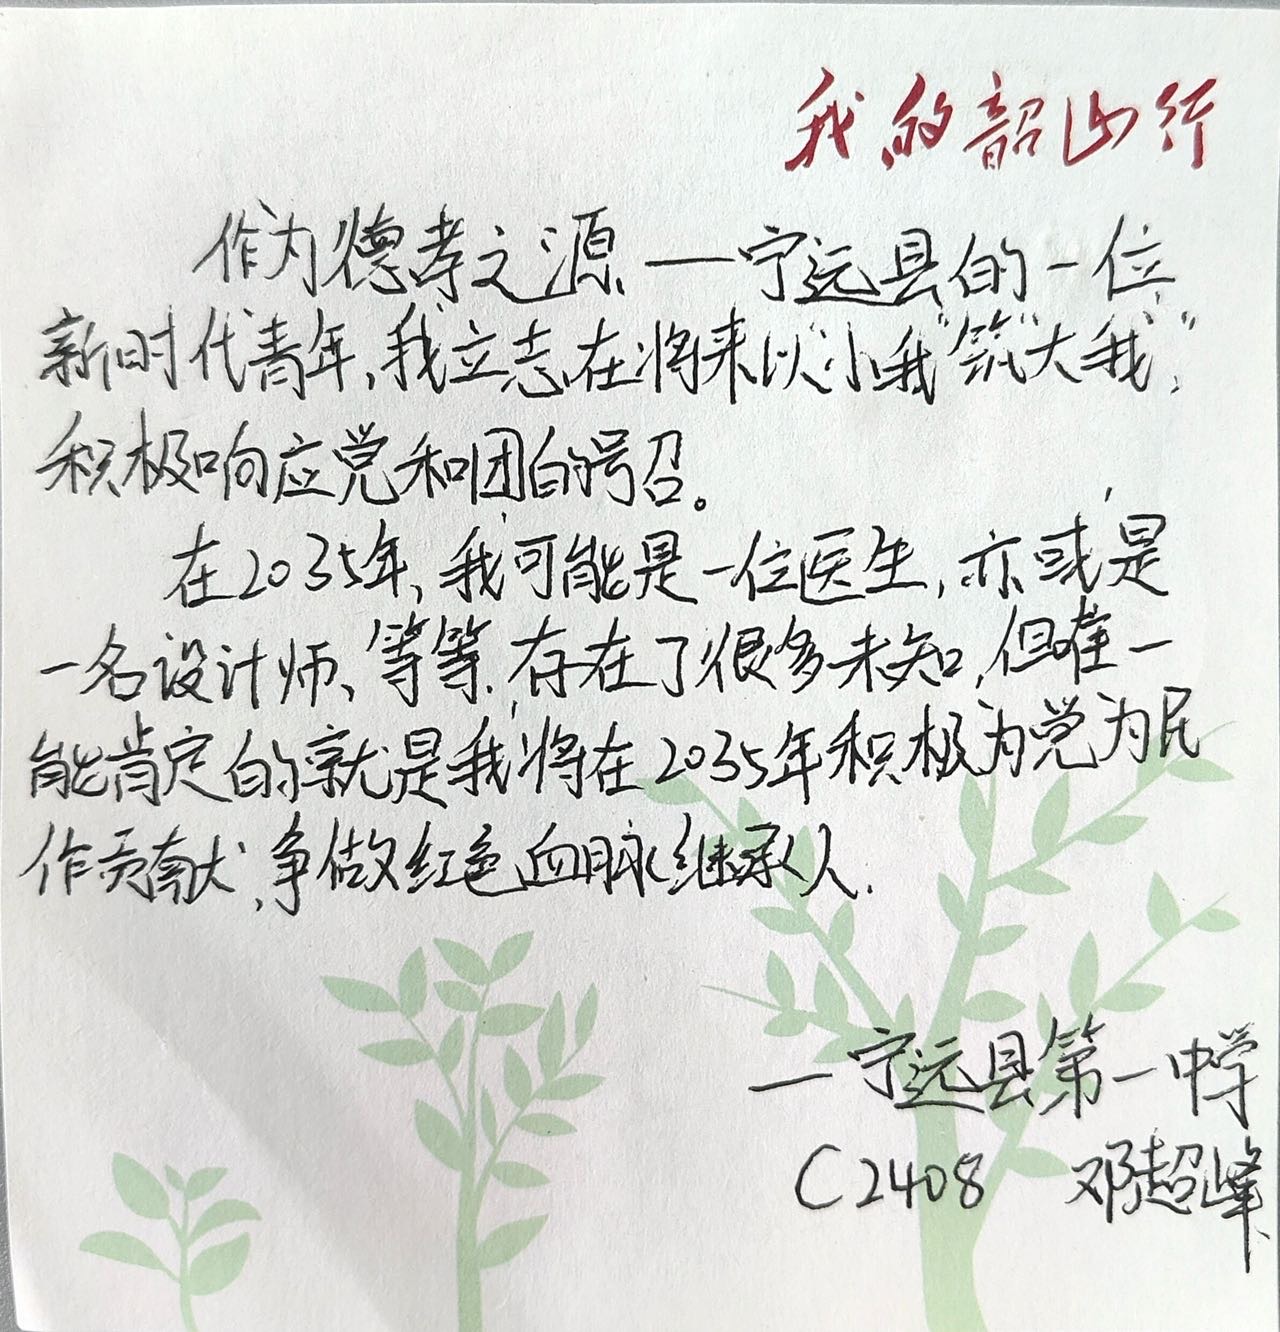 我的韶山行
作为德孝之源——宁远县的一位
新时代青年,我立志在将来以“小我”筑“大我”,
积极响应党和团的号召。
在2035年,我可能是一位医生,亦或是
一名设计师、等等,存在了很多未知,但唯一
能肯定的就是我将在2035年积极为党为民
作贡献,争做红色血脉继承人.
——宁远县第一中学
C2408 邓超峰